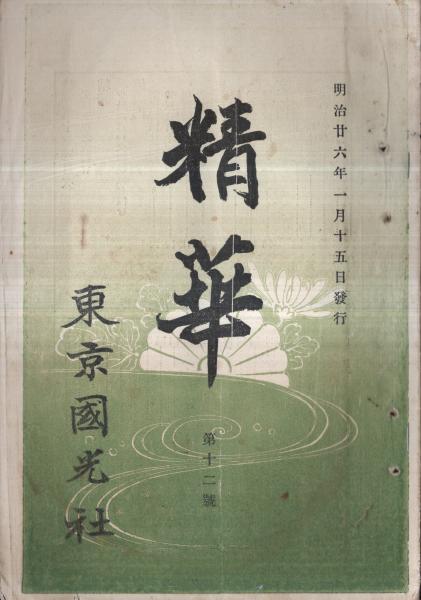 明治廿六年一月十五日發行
精華
第十二號
東京國光社